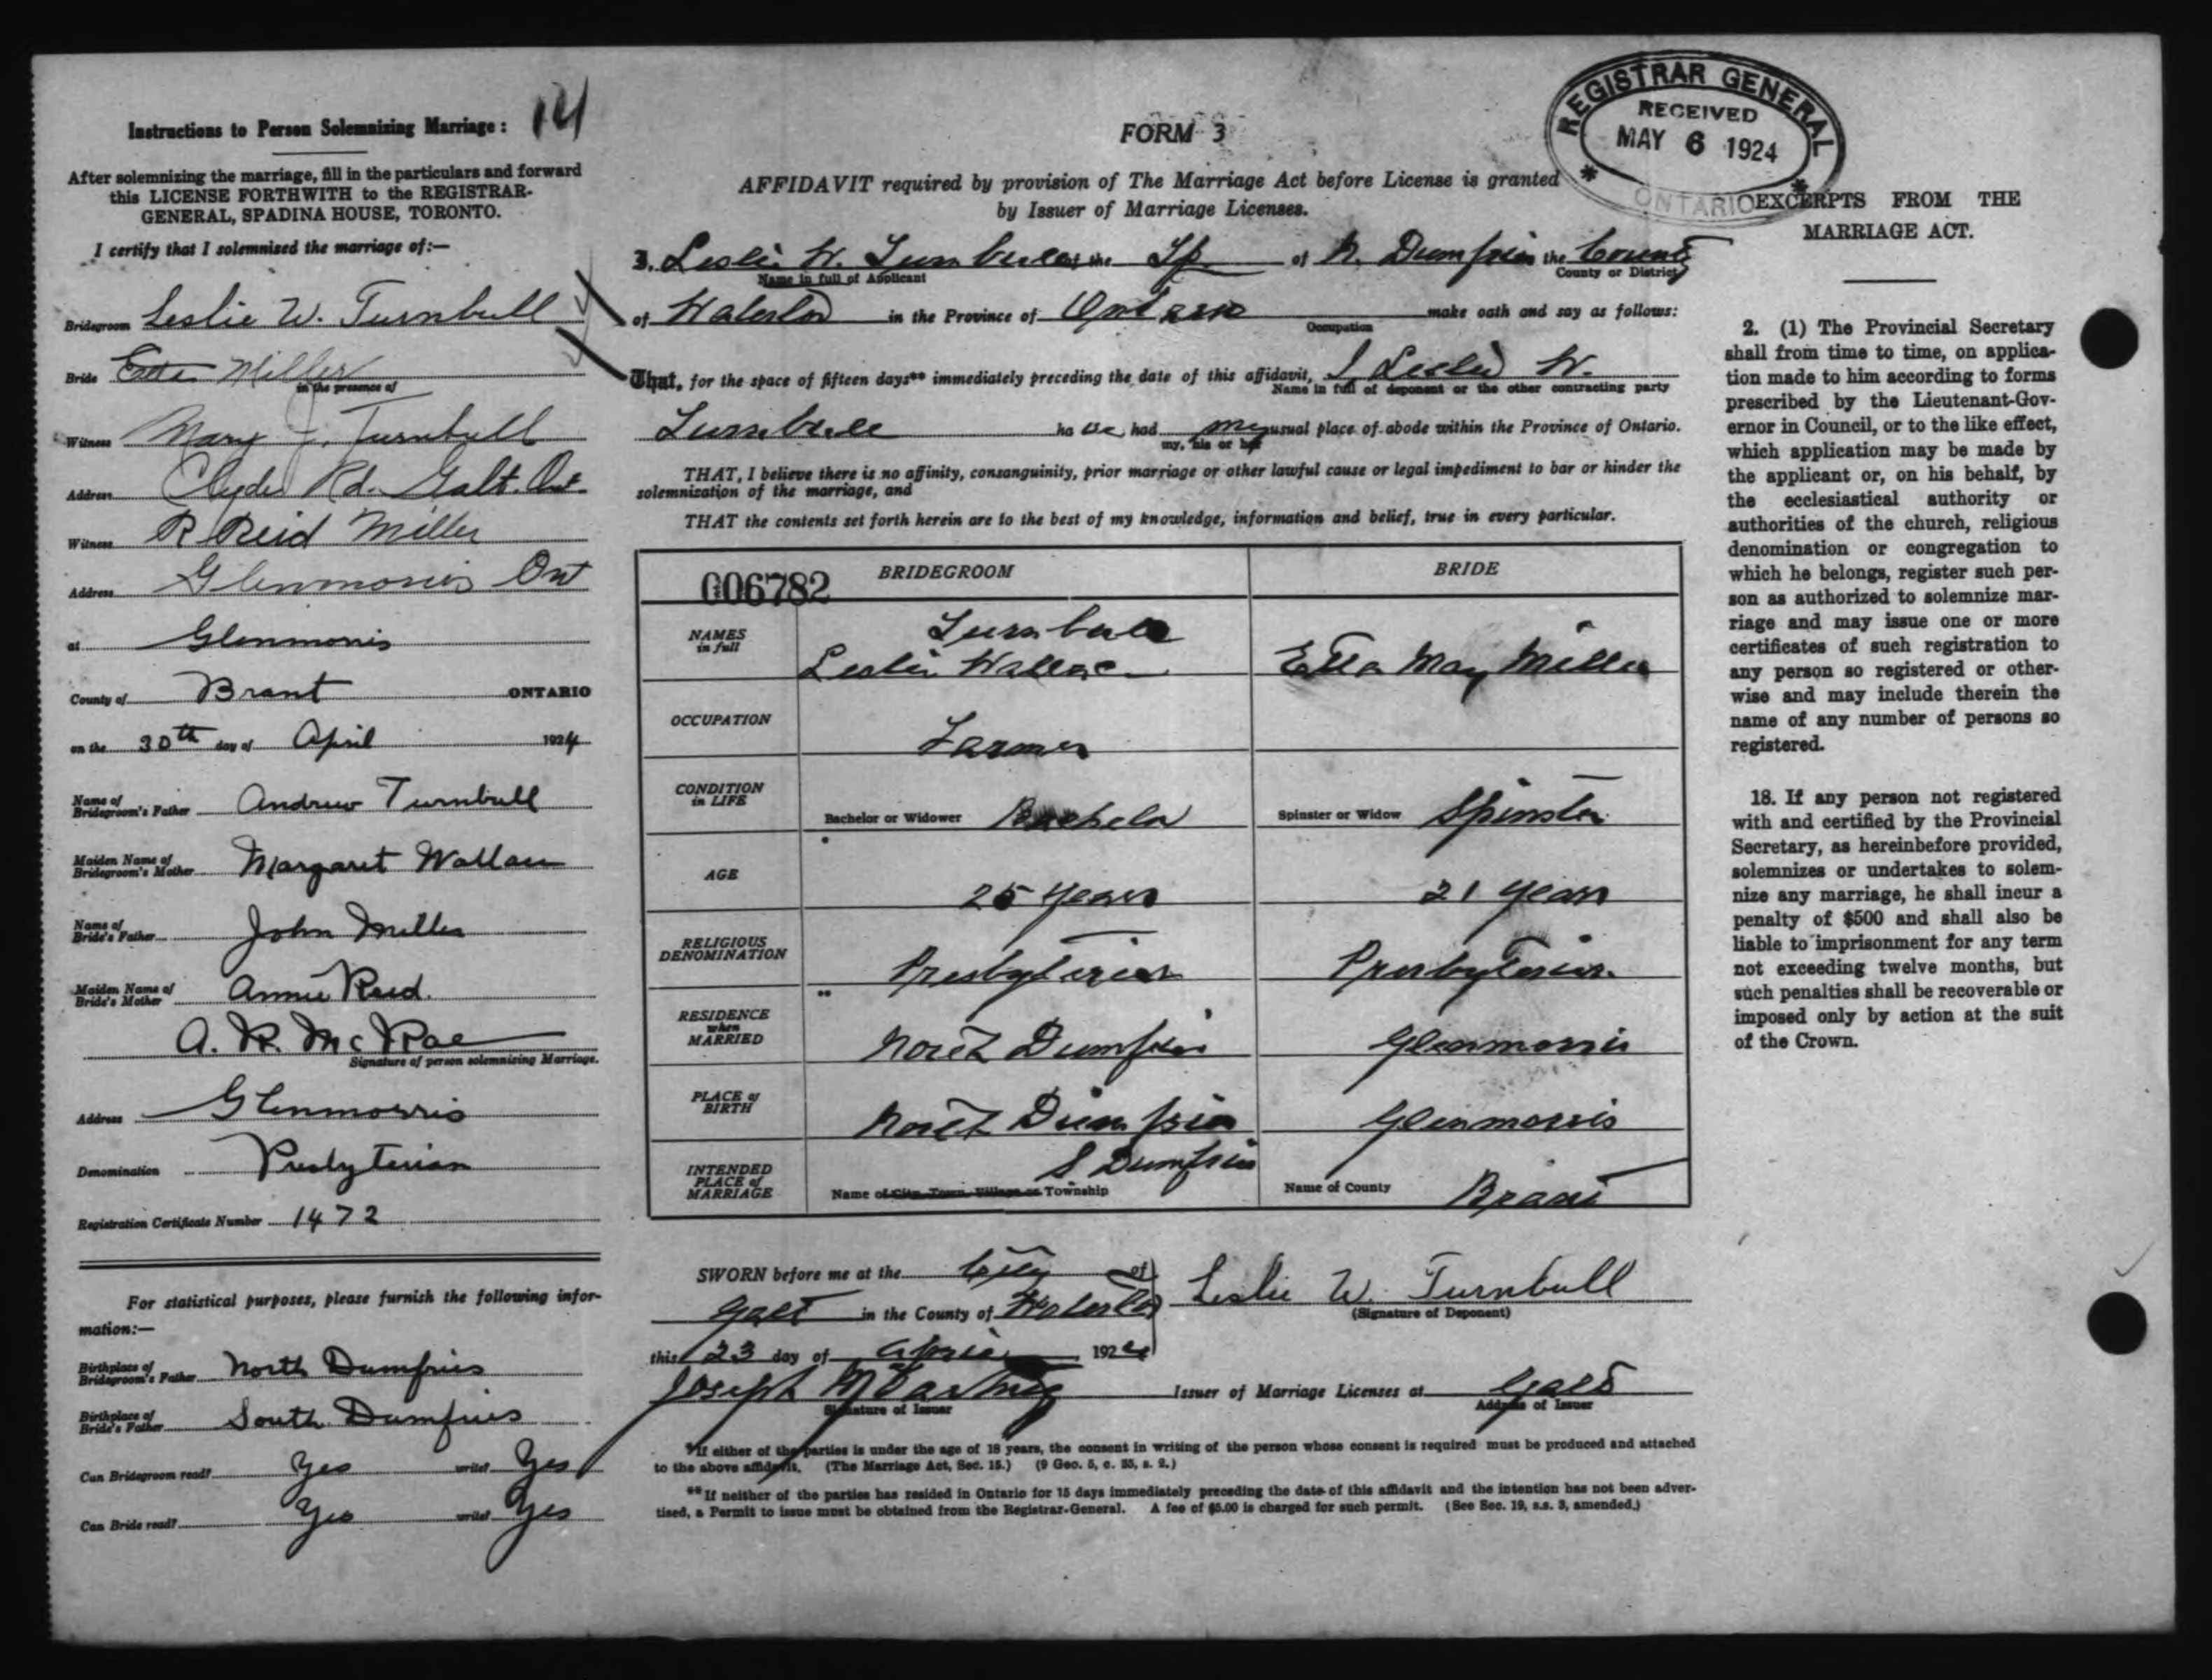 Instructions to Person Solemnizing Marriage: 141
After solemnizing the marriage, fill in the particulars and forward
this LICENSE FORTHWITH to the REGISTRAR-
GENERAL, SPADINA HOUSE, TORONTO.
I certify that I solemnised the marriage of:—
Bridegroom Leslie W. Turnbull
Bride Etta Miller
in the presence of
Witness Mary J. Turnbull
Address Clyde Rd. Galt. Ont.
Witness R Reid Miller
Address Glenmorris Ont
at Glenmorris
County of Brant ONTARIO
on the 30th day of April 1924
Name of
Bridegroom's Father Andrew Turnbull
Maiden Name of
Bridegroom's Mother Margaret Wallace
Name of
Bride's Father John Miller
Maiden Name of
Bride's Mother Annie Reid.
A. R. McRae
Signature of person solemnizing Marriage.
Address Glenmorris
Denomination Presbyterian
Registration Certificate Number 1472
For statistical purposes, please furnish the following infor-
mation:—
Birthplace of
Bridegroom's Father North Dumfries
Birthplace of
Bride's Father South Dumfries
Can Bridegroom read? Yes write? Yes
Can Bride read? Yes write? Yes
FORM 3
AFFIDAVIT required by provision of The Marriage Act before License is granted
by Issuer of Marriage Licenses.
I, Leslie W. Turnbull of the Tp of N. Dumfries the County
Name in full of Applicant County or District
of Waterloo in the Province of Ontario make oath and say as follows:
Occupation
That, for the space of fifteen days** immediately preceding the date of this affidavit, I Leslie W.
Name in full of deponent or the other contracting party
Turnbull ha ve had my usual place of abode within the Province of Ontario.
my, his or her
THAT, I believe there is no affinity, consanguinity, prior marriage or other lawful cause or legal impediment to bar or hinder the
solemnization of the marriage, and
THAT the contents set forth herein are to the best of my knowledge, information and belief, true in every particular.
006782 BRIDEGROOM BRIDE
NAMES
in full
Turnbull
Leslie Wallace Etta May Miller
OCCUPATION Farmer
CONDITION
in LIFE
Bachelor or Widower Bachelor Spinster or Widow Spinster
AGE 25 years 21 years
RELIGIOUS
DENOMINATION Presbyterian Presbyterian
RESIDENCE
when
MARRIED North Dumfries Glenmorris
PLACE of
BIRTH North Dumfries Glenmorris
INTENDED
PLACE of
MARRIAGE
S Dumfries
Name of City, Town, Village or Township Name of County Brant
SWORN before me at the City of
Galt in the County of Waterloo
this 23 day of April 1924
Leslie W. Turnbull
(Signature of Deponent)
Joseph McCartney Issuer of Marriage Licenses at Galt
Signature of Issuer Address of Issuer
*If either of the parties is under the age of 18 years, the consent in writing of the person whose consent is required must be produced and attached
to the above affidavit. (The Marriage Act, Sec. 15.) (9 Geo. 5, c. 35, s. 2.)
**If neither of the parties has resided in Ontario for 15 days immediately preceding the date of this affidavit and the intention has not been adver-
tised, a Permit to issue must be obtained from the Registrar-General. A fee of $5.00 is charged for such permit. (See Sec. 19, s.s. 3, amended.)
REGISTRAR GENERAL
RECEIVED
MAY 6 1924
ONTARIO
EXCERPTS FROM THE
MARRIAGE ACT.
2. (1) The Provincial Secretary
shall from time to time, on applica-
tion made to him according to forms
prescribed by the Lieutenant-Gov-
ernor in Council, or to the like effect,
which application may be made by
the applicant or, on his behalf, by
the ecclesiastical authority or
authorities of the church, religious
denomination or congregation to
which he belongs, register such per-
son as authorized to solemnize mar-
riage and may issue one or more
certificates of such registration to
any person so registered or other-
wise and may include therein the
name of any number of persons so
registered.
18. If any person not registered
with and certified by the Provincial
Secretary, as hereinbefore provided,
solemnizes or undertakes to solem-
nize any marriage, he shall incur a
penalty of $500 and shall also be
liable to imprisonment for any term
not exceeding twelve months, but
such penalties shall be recoverable or
imposed only by action at the suit
of the Crown.